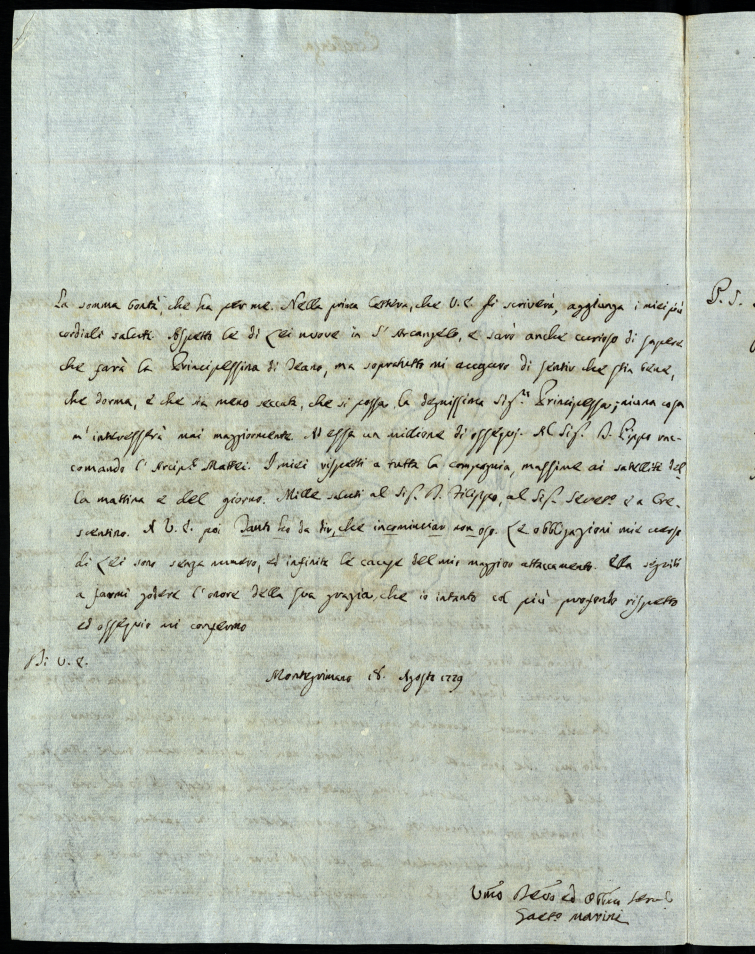 La somma bontà, che ha per me. Nella prima lettera, che V. E. gli scriverà, aggiunga i miei più
cordiali saluti. Aspetto le di Lei nuove in S. Arcangelo, e sarò anche curioso di sapere
che farà la Principessina di Teano, ma soprattutto mi auguro di sentir che stia bene,
che dorma, e che sia meno seccata, che si possa, la degnissima Sig.ra Principessa; niuna cosa
m'interesserà mai maggiormente. Ad essa un milione di ossequj. Al Sig. D. Lippo rac-
comando l'Arcip.e Mattei. I miei rispetti a tutta la compagnia, massime ai satelliti del
la mattina e del giorno. Mille saluti al Sig. D. Filippo, al Sig. Severo e a Cre-
scentino. A V. E. poi Tanto ho da dir, che incominciar non oso. Le obbligazioni mie verso
di Lei sono senza numero, ed infinite le cause del mio maggior attaccamento. Ella seguiti
a farmi godere l'onore della sua grazia, che io intanto col più profondo rispetto
ed ossequio mi confermo
Di V. E.
Montegrimano 18. Agosto 1779
Umo Devmo ed Obbmo Serv
Gaeto Marini
P. S.